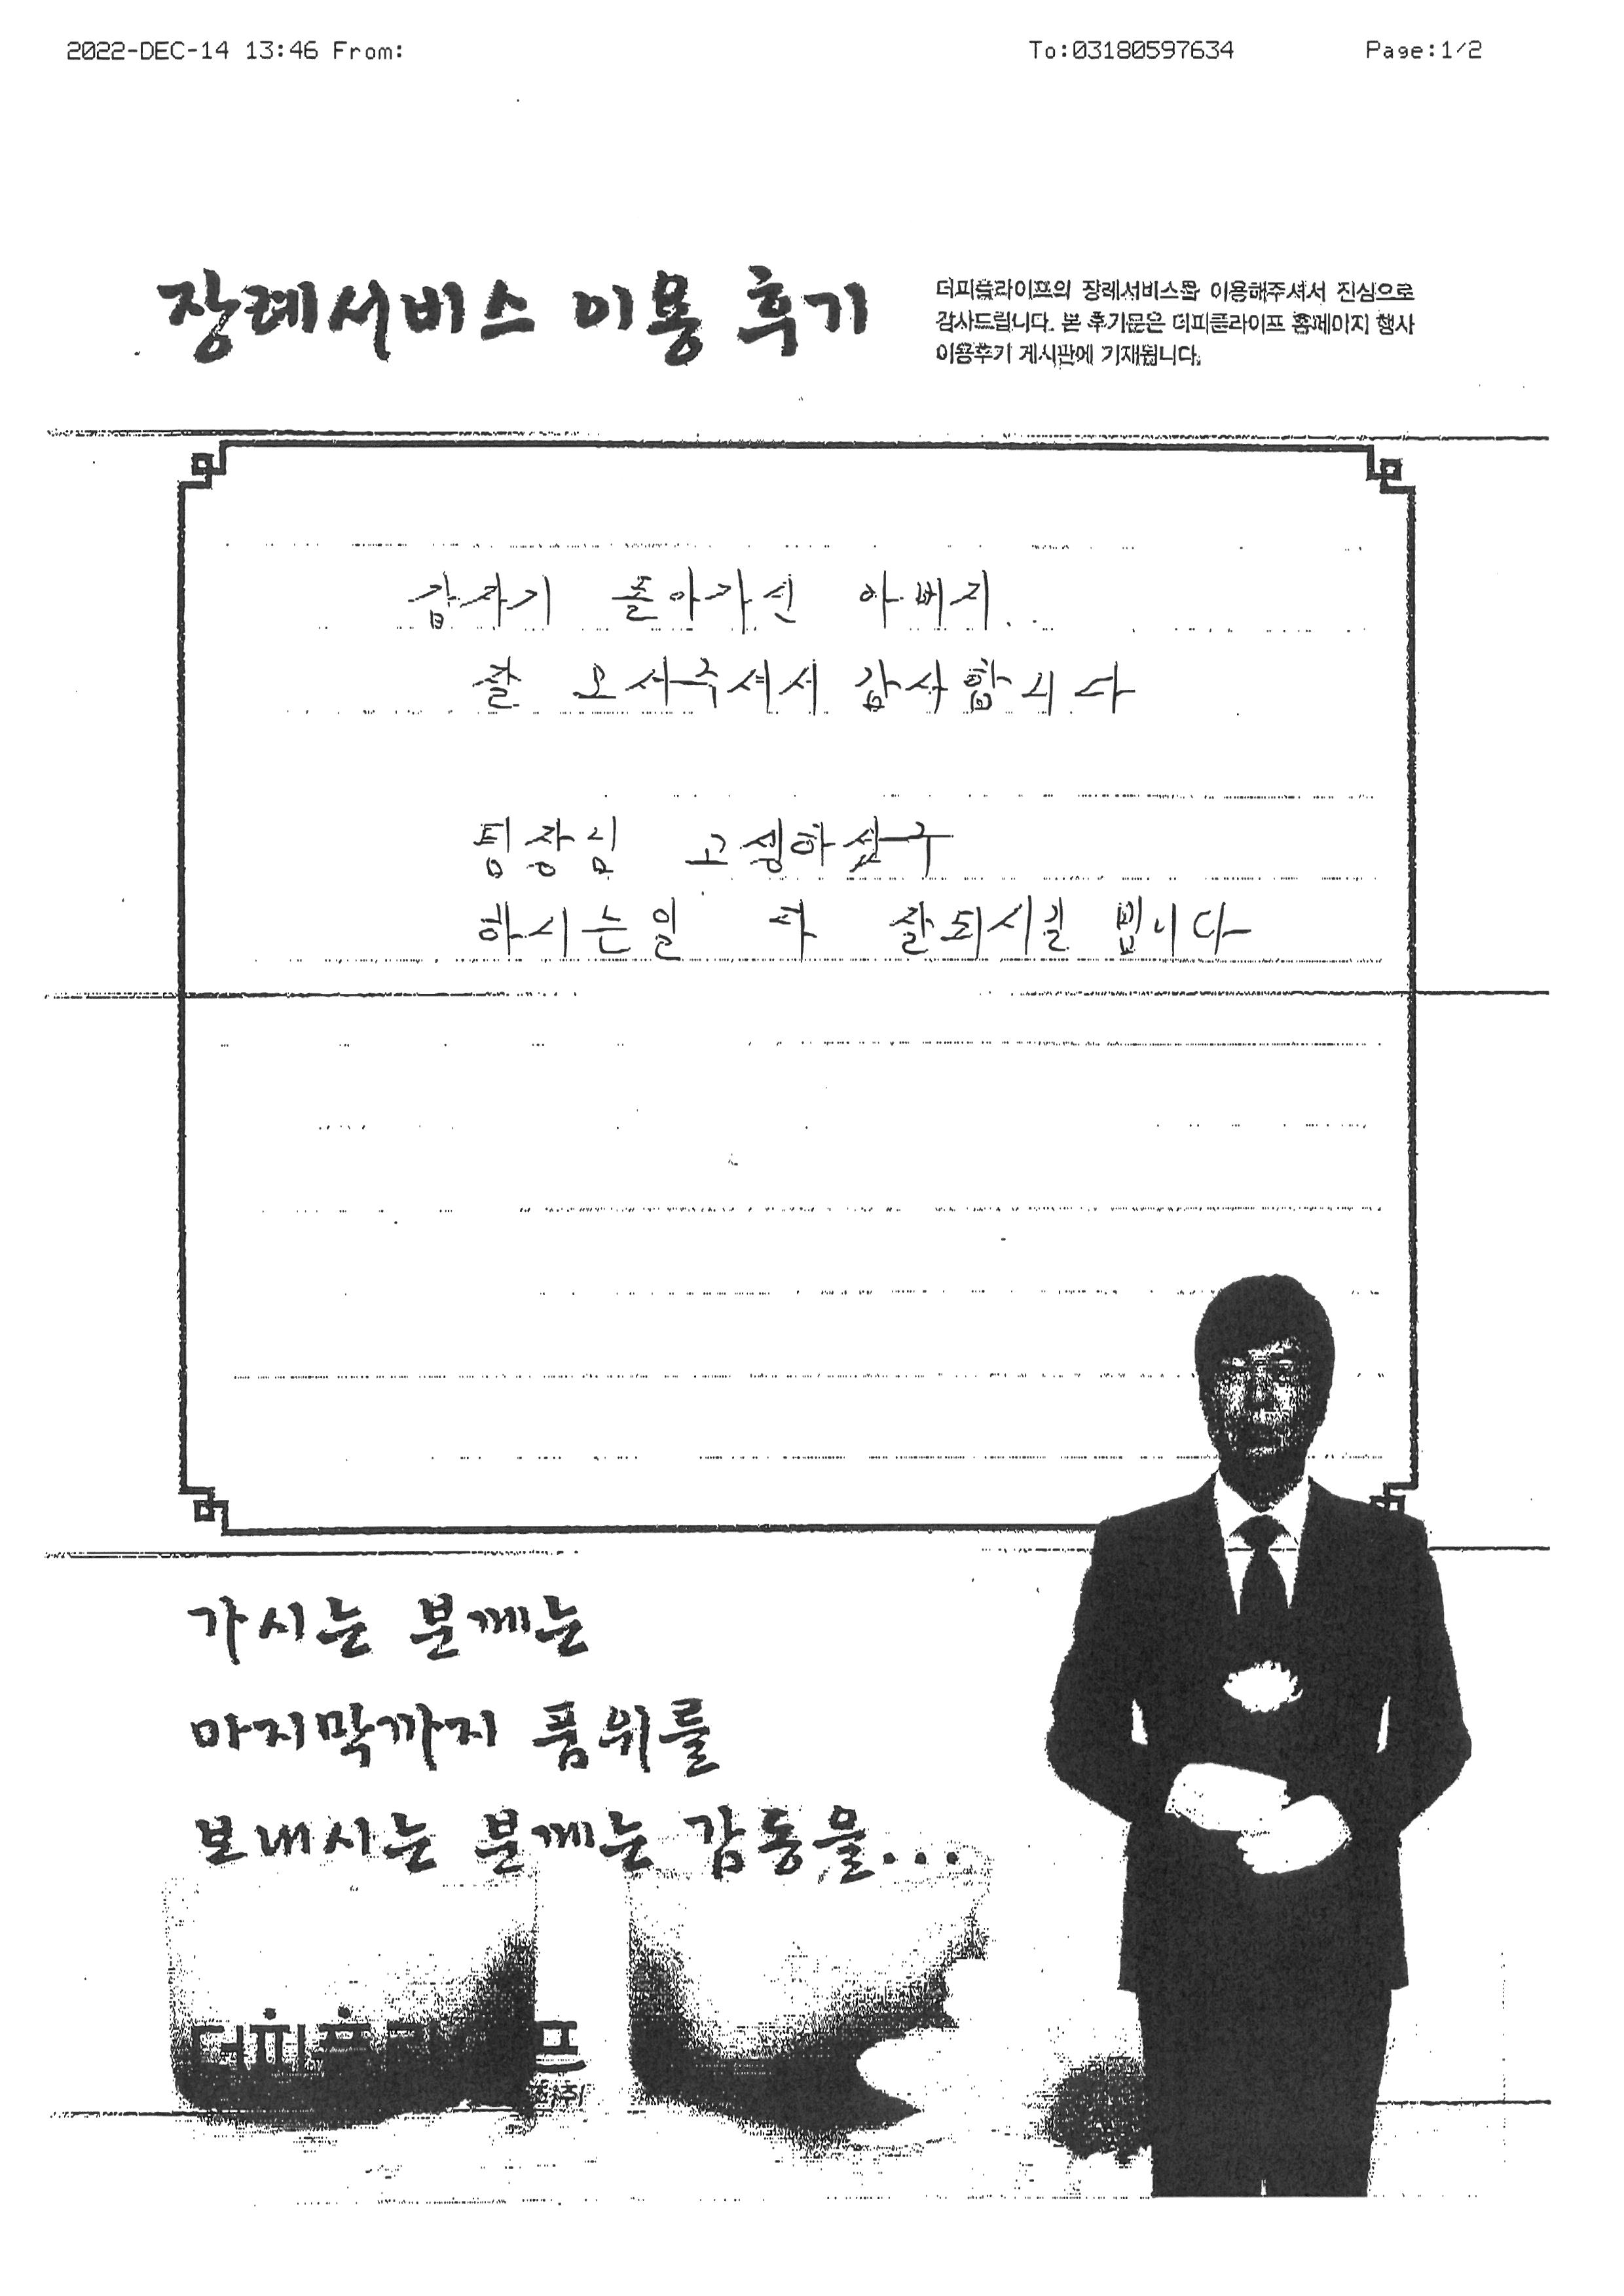 2022-DEC-14 13:46 From: To:03180597634 Page:1/2
장례서비스 이용 후기
더피플라이프의 장례서비스를 이용해주셔서 진심으로
감사드립니다. 본 후기문은 더피플라이프 홈페이지 행사
이용후기 게시판에 기재됩니다.
갑자기 돌아가신 아버지..
잘 모셔주셔서 감사합니다
팀장님 고생하셨구
하시는일 다 잘되시길 빕니다
가시는 분께는
마지막까지 품위를
보내시는 분께는 감동을...
더피플라이프